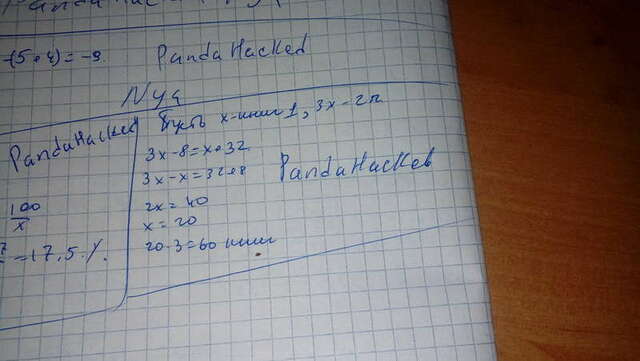 -(5+4)=-9. PandaHacked
Nya
PandaHacked
100
x
=17,5%
Пусть x-книг 1, 3x-2п
3x-8=x+32
3x-x=32+8
2x=40
x=20
20·3=60 книг
PandaHacked